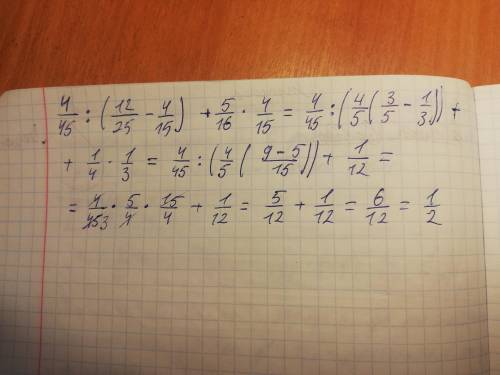 4/45 : (12/25 - 4/15) + 5/16 · 4/15 = 4/45 : (4/5 (3/5 - 1/3)) +
+ 1/4 · 1/3 = 4/45 : (4/5 (9-5/15)) + 1/12 =
= 4/453 · 5/4 · 15/4 + 1/12 = 5/12 + 1/12 = 6/12 = 1/2